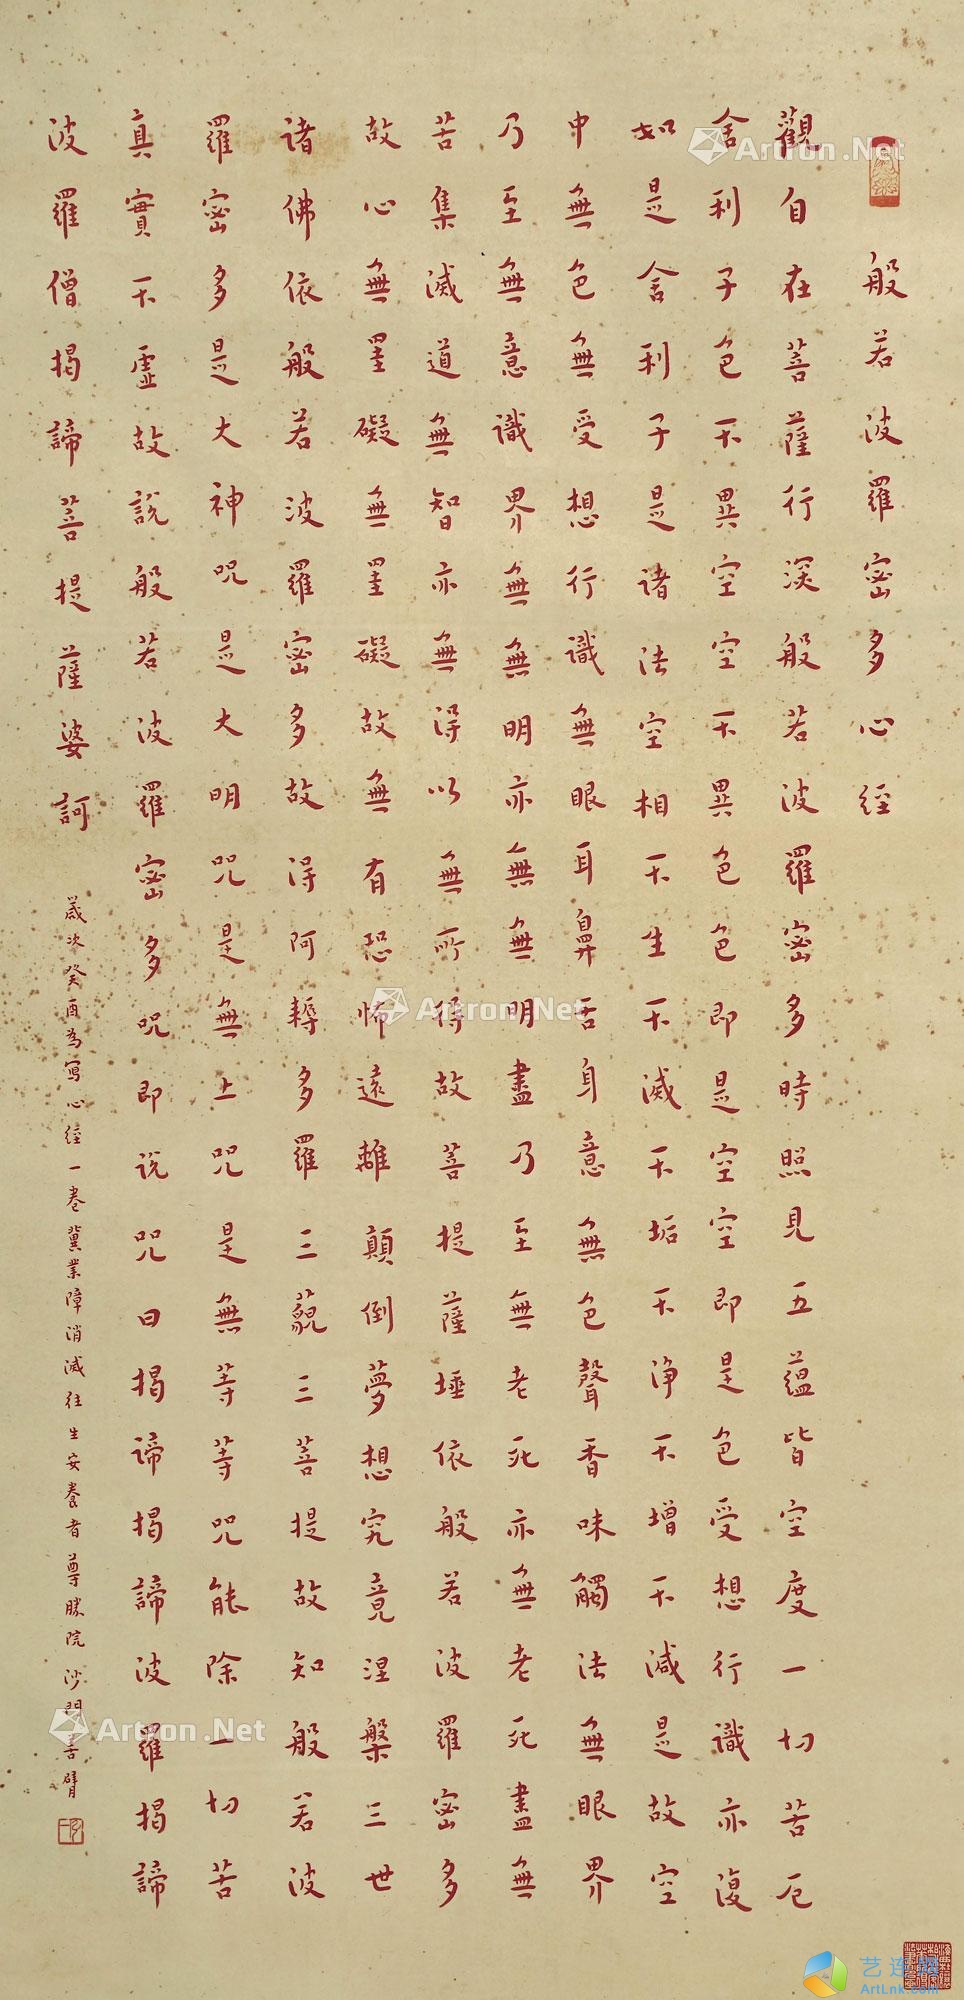 般若波羅密多心經
觀自在菩薩行深般若波羅密多時照見五蘊皆空度一切苦厄
舍利子色不異空空不異色色即是空空即是色受想行識亦復
如是舍利子是諸法空相不生不滅不垢不淨不增不減是故空
中無色無受想行識無眼耳鼻舌身意無色聲香味觸法無眼界
乃至無意識界無無明亦無無明盡乃至無老死亦無老死盡無
苦集滅道無智亦無得以無所得故菩提薩埵依般若波羅密多
故心無罣礙無罣礙故無有恐怖遠離顛倒夢想究竟涅槃三世
諸佛依般若波羅密多故得阿耨多羅三藐三菩提故知般若波
羅密多是大神咒是大明咒是無上咒是無等等咒能除一切苦
真實不虛故說般若波羅密多咒即說咒曰揭諦揭諦波羅揭諦
波羅僧揭諦菩提薩婆訶
歲次癸酉為寫心經一卷冀業障消滅往生安養者尊勝院沙門善臂
Artron.Net
Artron.Net
Artron.Net
ArtLnk.com